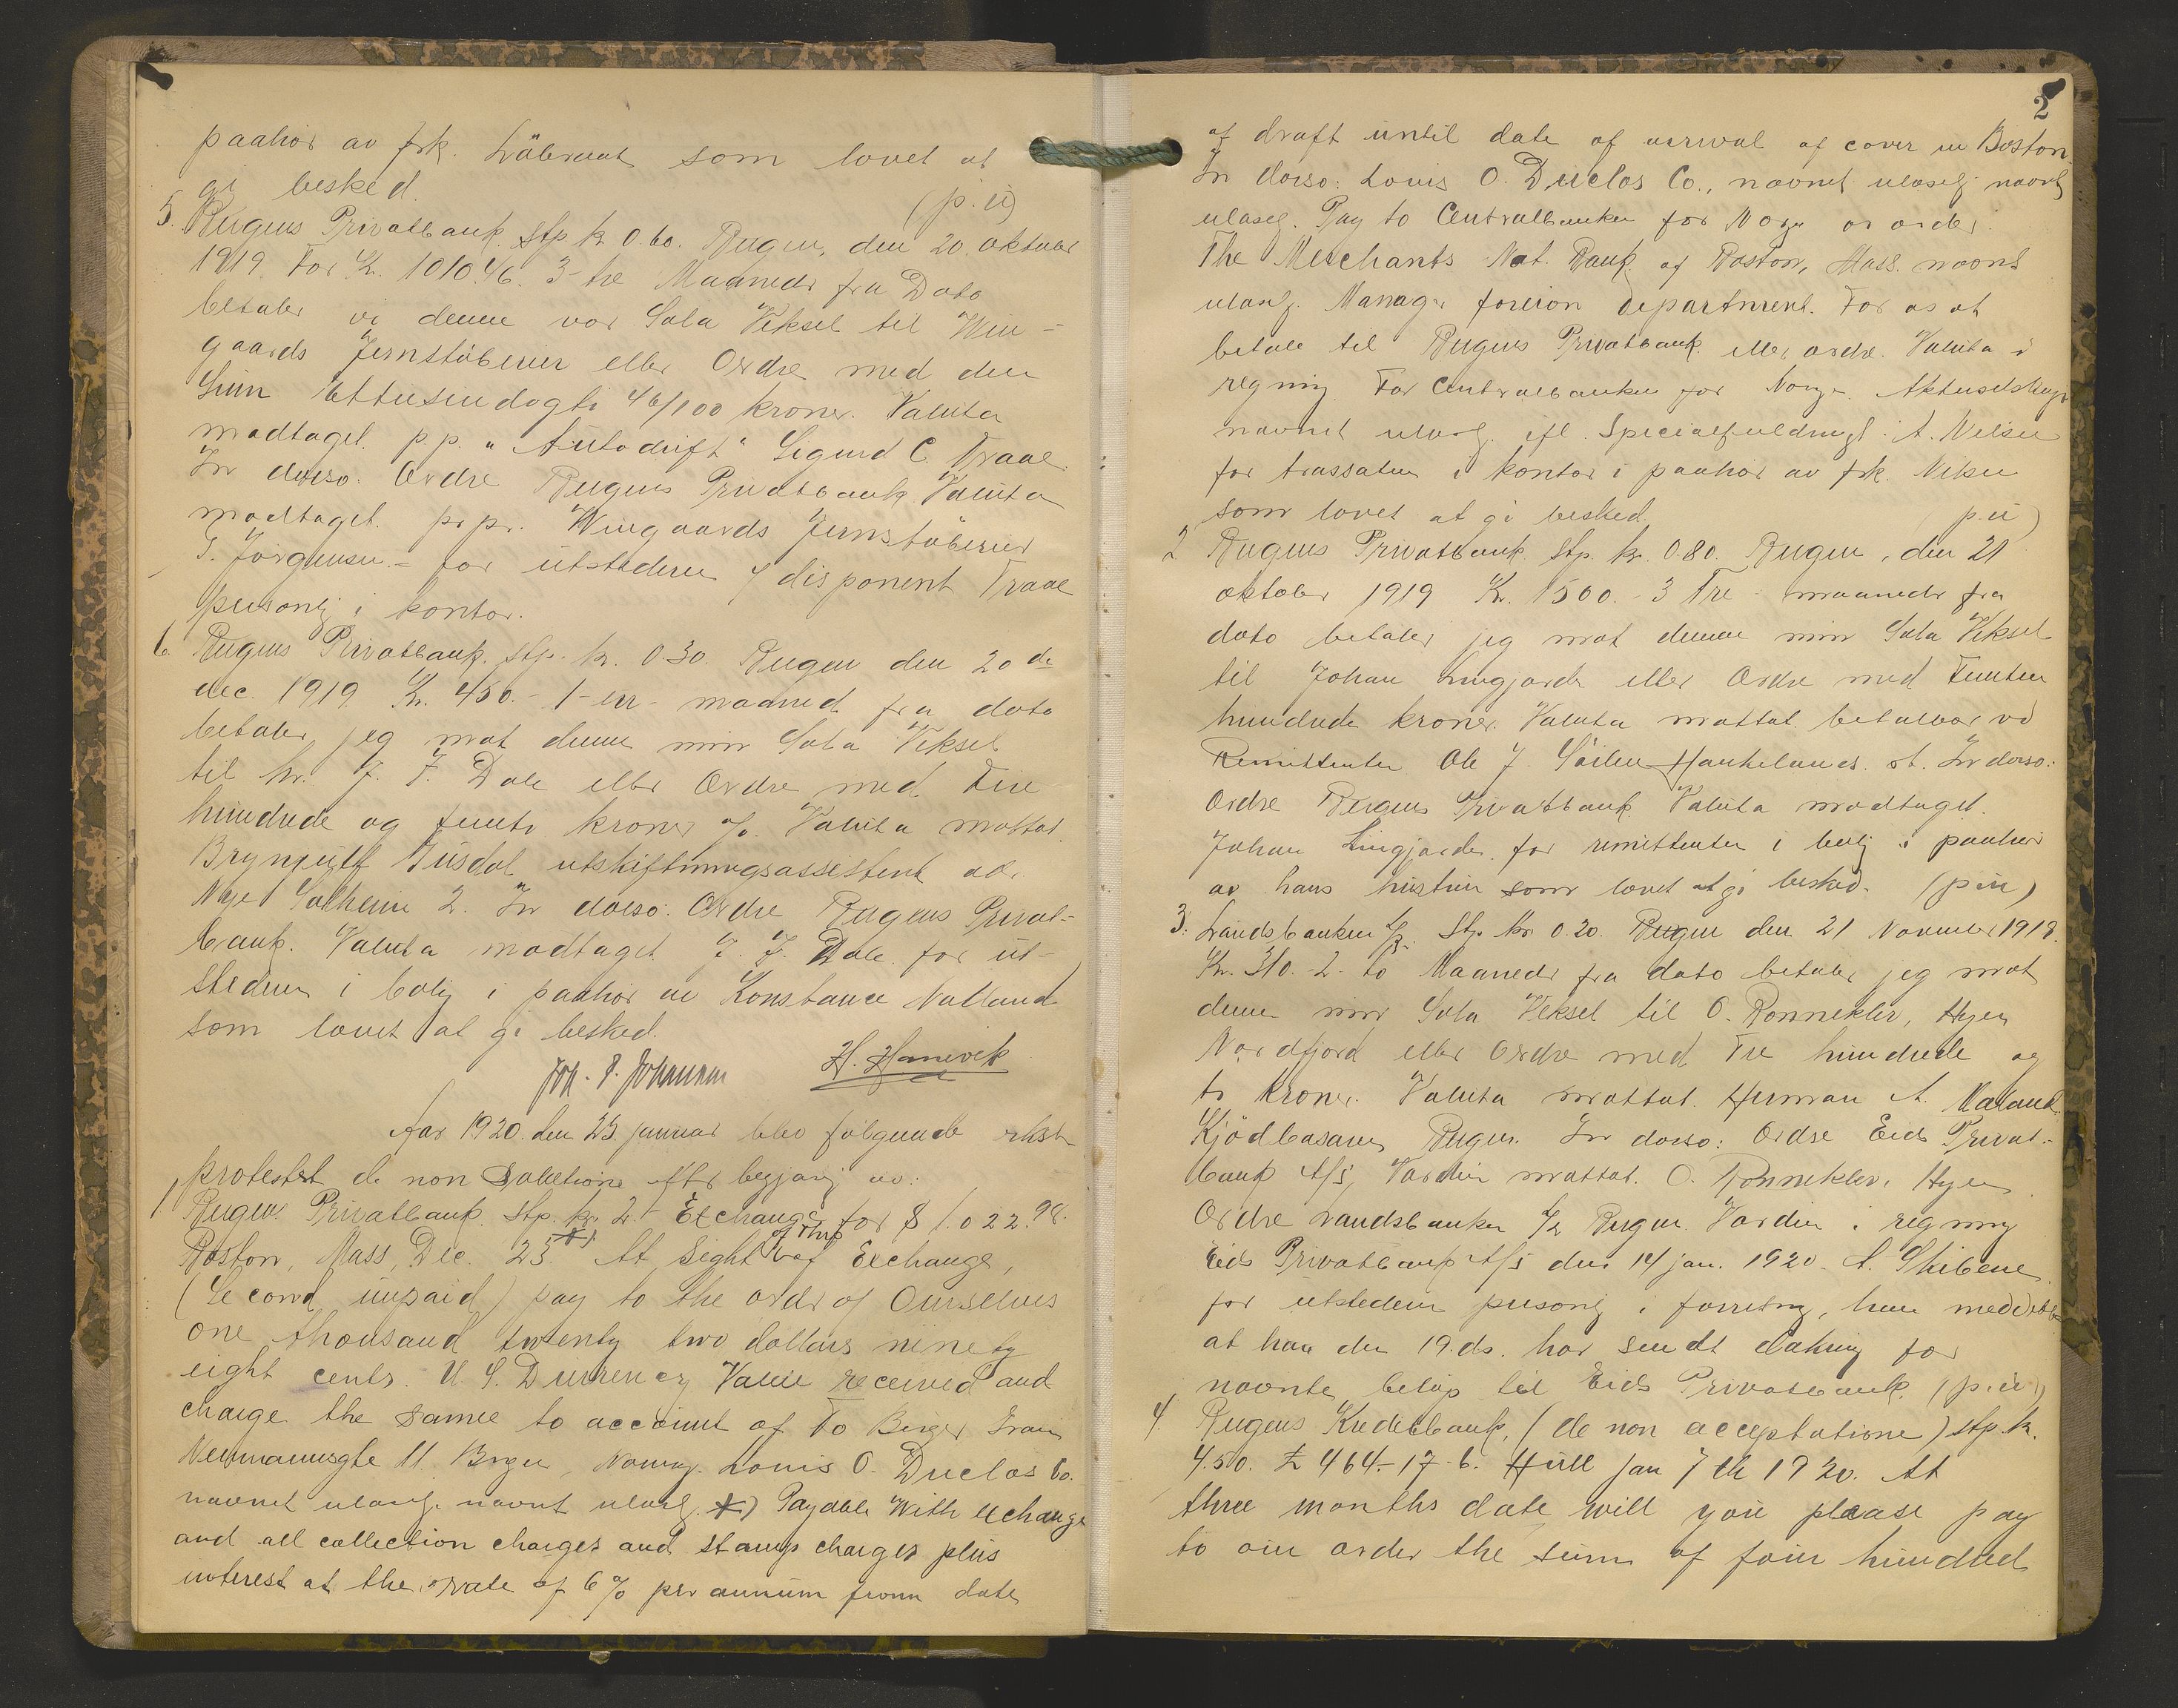 paahør av frk. som lovet at
gi besked. (p. u)
5. Bergens Privatbank. Stp. kr. 0.60. Bergen, den 20. oktober
1919. For Kr. 1010.46. 3-tre Maaneder fra Dato
betaler vi denne vor Sola Veksel til Win-
gaards Jernstöberier eller Ordre med den
Sum Ettusindogti 46/100 kroner. Valuta
modtaget. p.p. "Autodrift" Sigurd C. Traae.
In dorso. Ordre Bergens Privatbank Valuta
modtaget. pr. pr. Wingaards Jernstöberier
Jörgensen. - for utstederen v/ disponent Traae
personlig i kontor.
6. Bergens Privatbank. Stp. kr. 0.30. Bergen den 20de
dec. 1919. Kr. 450.- 1-en- maaned fra dato
betaler jeg mot denne min Sola Veksel
til hr. J. J. Dale eller Ordre med Fire
hundrede og femti kroner o/o. Valuta mottat
Brynjulf utskiftningsassistent ad.
Nye Solheim 2. In dorso: Ordre Bergens Privat-
bank. Valuta modtaget J. J. Dale. for ut-
stederen i bolig i paahør av Konstance Natland
som lovet at gi besked.
Joh. P. Johannesen H. Hanevik
Aar 1920. den 23. januar blev følgende vekst
protestert de non solutione efter begjæring av:
1, Bergens Privatbank. Stp. kr. 2.- Exchange for $ 1.022.98.
Boston, Mass, Dec. 23. *) At sight of this of Exchange,
(Second unpaid) pay to the order of Ourselves
one thousand twenty two dollars ninety
eight cents. U. S. Durrency Value received and
charge the same to account of To Birger
Neumannsgte 11. Bergen, Norway. Louis O. Duclos Co.
navnet ulæselig navnet ulæselig. *) Payable with exchange
and all collection charges and stamp charges plus
interest at the rate of 6 % per annum from date
2
of draft until date of arrival of cover in Boston.
In dorso: Louis O. Duclos Co., navnet ulæselig navnet
ulæselig. Pay to Centralbanken for Norge or order.
The Merchants Nat. Bank of Boston, Mass. navnet
ulæselig. Manager foreion Department. For os at
betale til Bergens Privatbank. eller ordre. Valuta i
regning. For Centralbanken for Norge. Aktieselskap
navnet ulæselig. ifl. Specialfuldmagt. A. Nilsen
for trassaten i kontor i paahør av frk. Nilsen
som lovet at gi besked. p. u)
2 Bergens Privatbank Stp. kr. 0.80. Bergen, den 21
oktober 1919 Kr. 1500.- 3 Tre maaneder fra
dato betaler jeg mot denne min Sola Veksel
til Johan Lingjærde eller Ordre med Femten
hundrede kroner. Valuta mottat. betalbar vd
Remittenten Ole J. Söilen Haukelands. st. In dorso:
Ordre Bergens Privatbank Valuta modtaget.
Johan Lingjærde. for remittenten i bolig i paahør
av hans hustru som lovet at gi besked. (p. u)
3. Landsbanken A/S. Stp. kr. 0.20. Bergen den 21 November 1919.
Kr. 310.- 2- to Maaneder fra dato betaler jeg mot
denne min Sola Veksel til O. Rønnekler, Hyen
Nordfjord eller Ordre med Tre hundrede og
ti kroner. Valuta mottat. Herman A. Maland.
Kjødbasaren Bergen. In dorso: Ordre Eids Privat-
bank A/S, Værdien mottat. O. Rønnekler, Hyen.
Ordre Landsbanken A/S Bergen. Værdien i regning
Eids Privatbank A/S den 14 jan. 1920. A.
for utstederen personlig i forretning, han meddelte
at han den 19. ds. har sendt dækning for
nævnte beløp til Eids Privatbank. (p. u.)
4. Bergens Kreditbank, (de non acceptatione) stp. kr.
4.50. £ 464-17-6. Hull Jan 7 th 1920. At
three months date will you please pay
to our order the sum of four hundred